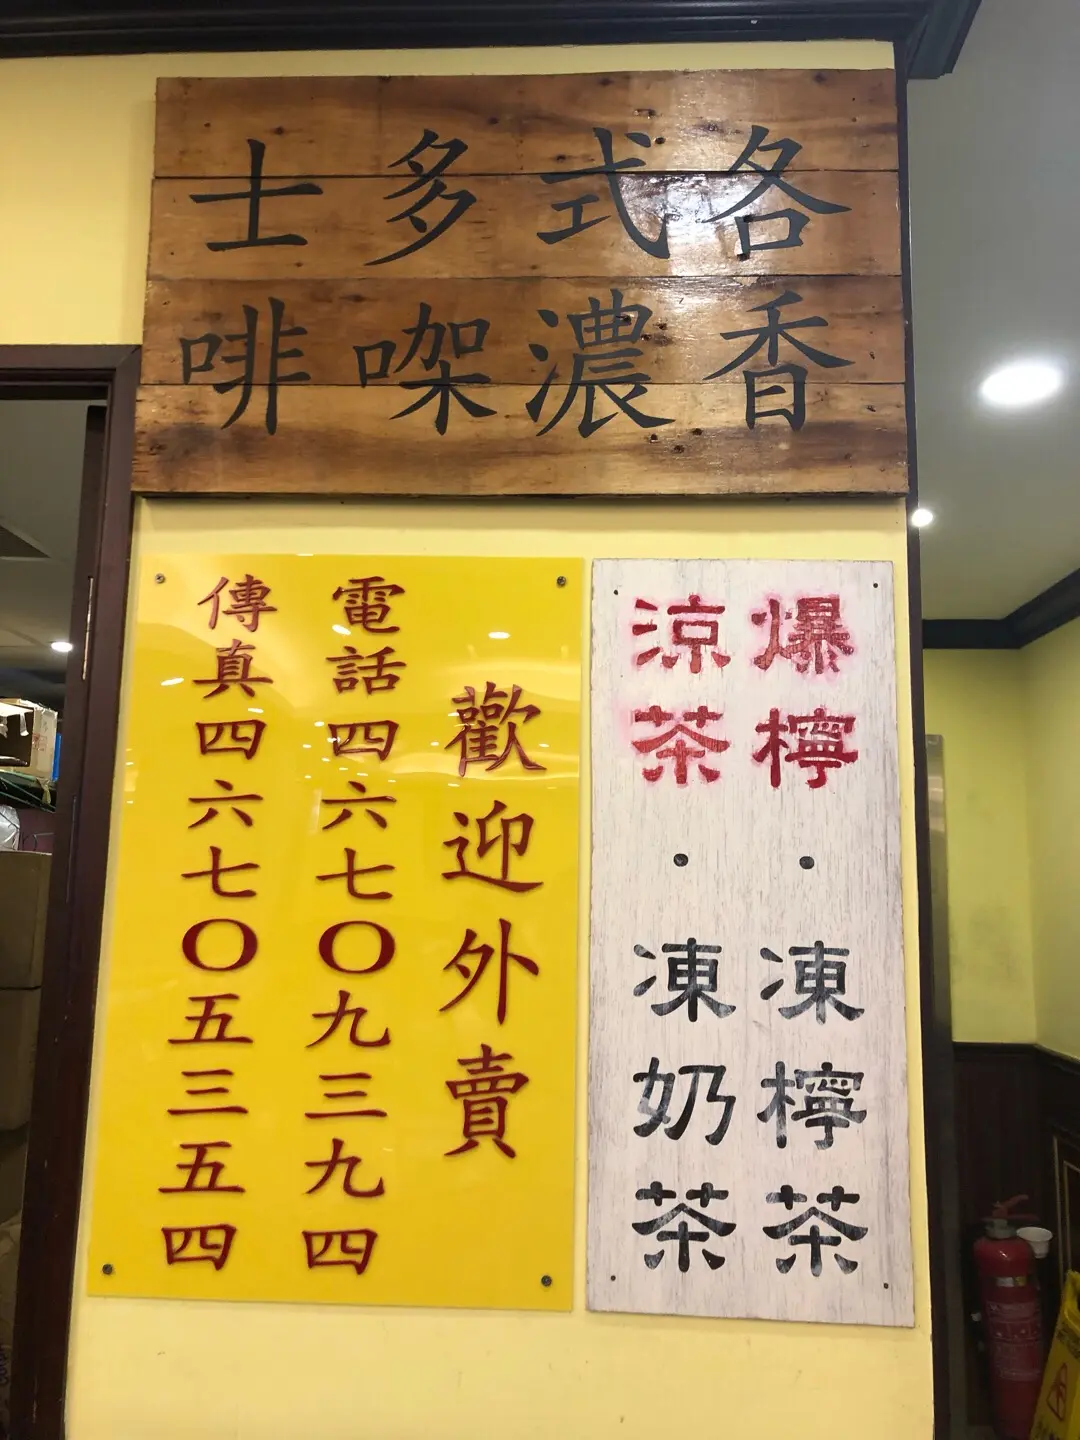 各式多士
香濃㗎啡
爆檸・凍檸茶
涼茶・凍奶茶
歡迎外賣
電話四六七〇九三九四
傳真四六七〇五三五四